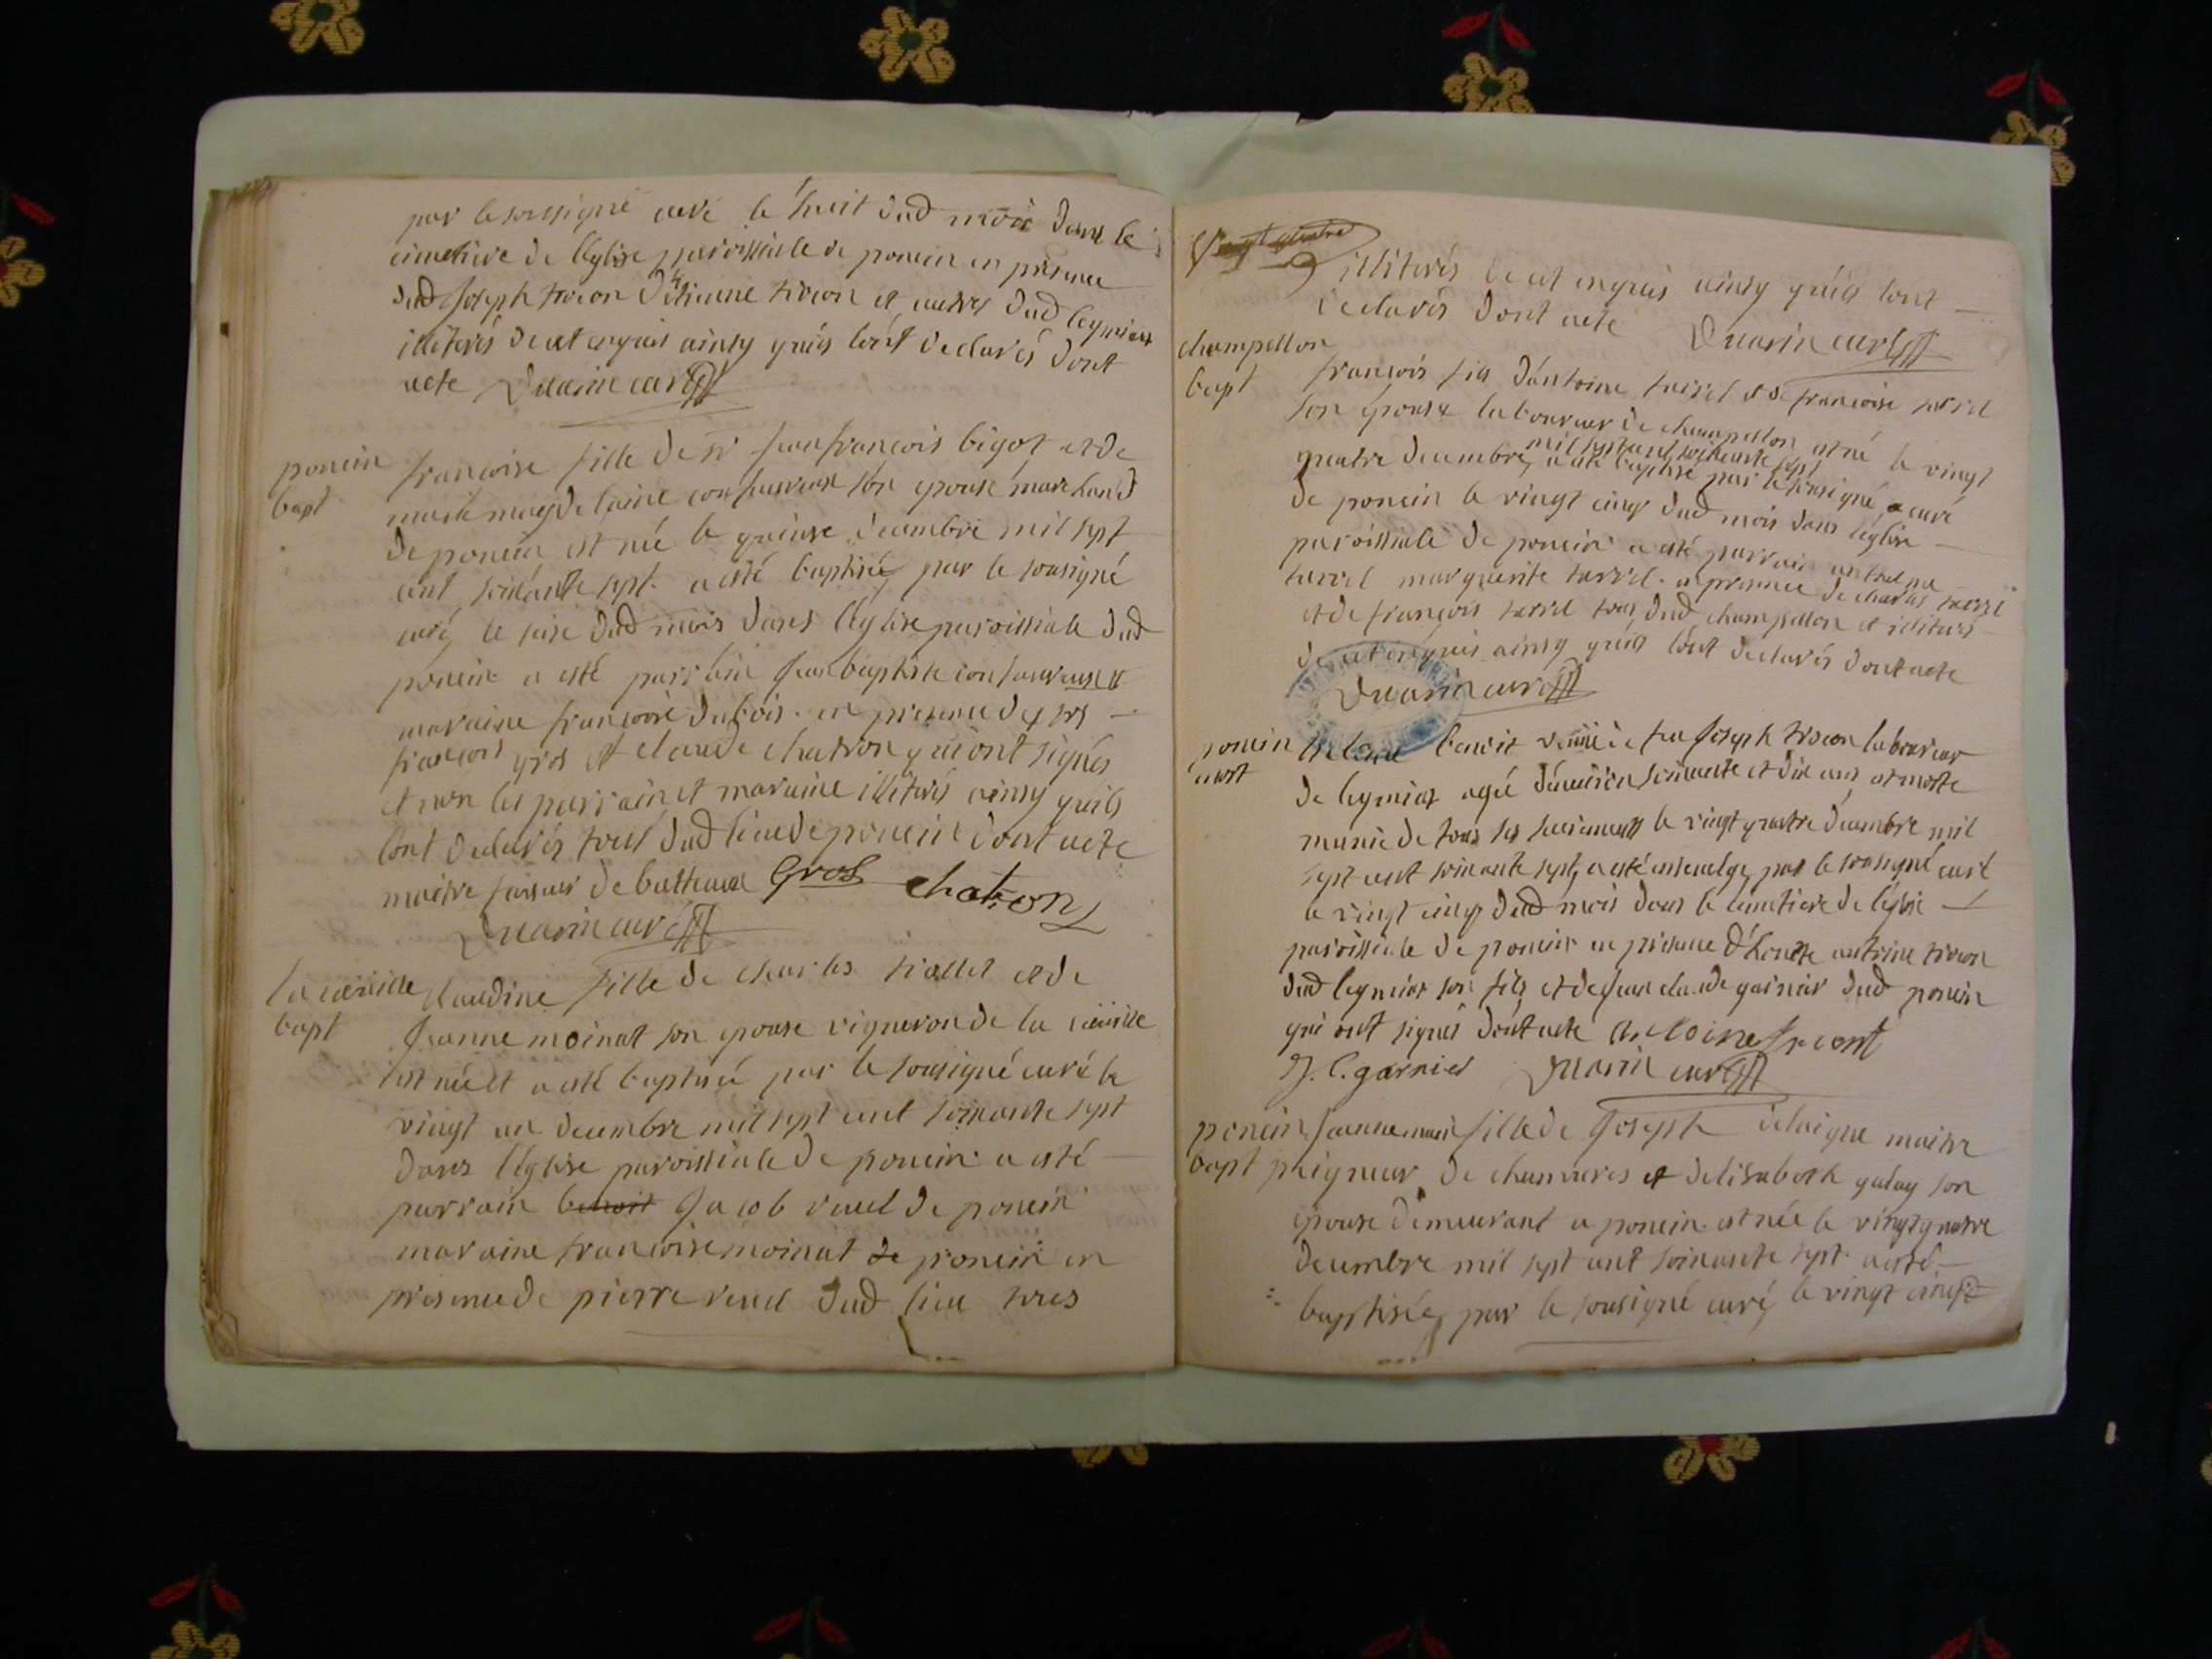 par le soussigné curé le huit dud mois dans le
cimetiere de l'eglise paroissiale de poncin en présence
dud joseph trocon d'étienne trocon et autres dud leymiat
illiterés de ce enquis ainsy quils l'ont declarés dont
acte Duarin curé
poncin
bapt
francoise fille de sr jean françois bigot et de
marie magdelaine son epouse marchand
de poncin est née le quinse decembre mil sept
cent soixante sept a esté baptisée par le sousigné
curé le seise dud mois dans l'eglise paroissiale dud
poncin a esté parrain jean baptiste et
maraine francoise dubois en presence des srs
françois gros et claude chatron qui ont signés
et non les parrain et maraine illiterés ainsy quils
l'ont declarés tous dud lieu de poncin dont acte
maitre faiseur de batteaux Gros chatron
Duarin curé
la cueille
bapt
claudine fille de charles et de
jeanne moinat son epouse vigneron de la cueille
est née et a esté baptisée par le sousigné curé le
vingt un decembre mil sept cent soixante sept
dans l'eglise paroissiale de poncin a esté
parrain benoit jacob revel de poncin
maraine francoise moinat de poncin en
presence de pierre revel dud lieu tous
vingt quatre
illiterés de ce enquis ainsy quils l'ont
declarés dont acte Duarin curé
champellon
bapt
françois fils d'antoine tarrel et de francoise tarrel
son epouse laboureur de champellon est né le vingt
mil sept cent soixante sept
quatre decembre a esté baptisé par le sousigné curé
de poncin le vingt cinq dud mois dans l'eglise
paroissiale de poncin a esté parrain anthelme
tarrel marguerite tarrel en presence de charles tarrel
et de françois tarrel tous dud champellon et illiterés
de ce enquis ainsy quils l'ont declarés dont acte
Duarin curé
poncin
mort
benoit veuve de feu joseph trocon laboureur
de leymiat agée d'environ soixante et dix ans est morte
munie de tous les sacremens le vingt quatre decembre mil
sept cent soixante sept a esté ensevelye par le sousigné curé
le vingt cinq dud mois dans le cimetiere de l'eglise
paroissiale de poncin en presence d'honete antoine trocon
dud leymiat son fils et de jean claude garnier dud poncin
qui ont signés dont acte antoine trocont
J. C. garnier Duarin curé
poncin
bapt
jeanne marie fille de joseph delaigue maitre
peigneur de chanvres et d'elisabeth galay son
epouse demeurant a poncin est née le vingt quatre
decembre mil sept cent soixante sept a esté
baptisée par le sousigné curé le vingt cinq